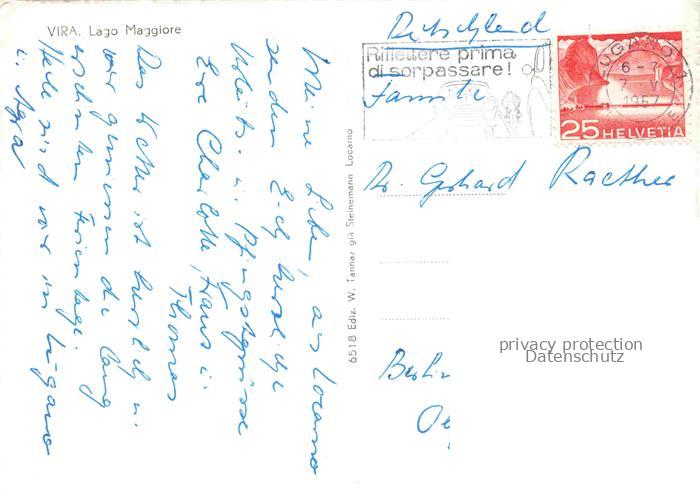 VIRA. Lago Maggiore
Meine Lieben, aus Locarno
senden Euch herzliche
Urlaubs- u. Pfingstgrüsse
Eve Charlotte, Hans u.
Thomas
Das Wetter ist herrlich u.
wir geniessen die lang
ersehnten Ferientage.
Heute sind wir in Lugano
u. Agra
6518 Ediz. W. Tannaz già Steinemann Locarno
Deutschland
Riflettere prima
di sorpassare!
LUGANO 1
6-7
1957
25 HELVETIA
Familie
Dr. Gerhard Raether
Berlin
privacy protection
Datenschutz